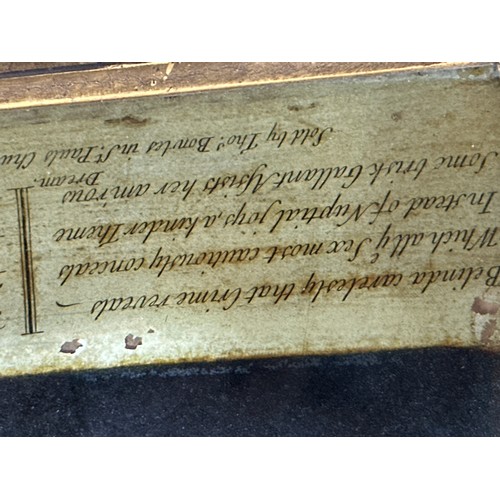 Belinda carelesly that Crime reveals
Which all yᵉ Sex most cautiously conceals
Instead of Nuptial joys, a kinder Theme
Some brisk Gallant Assists her am'rous
Dream.
Sold by Thoˢ. Bowles in Sᵗ. Pauls